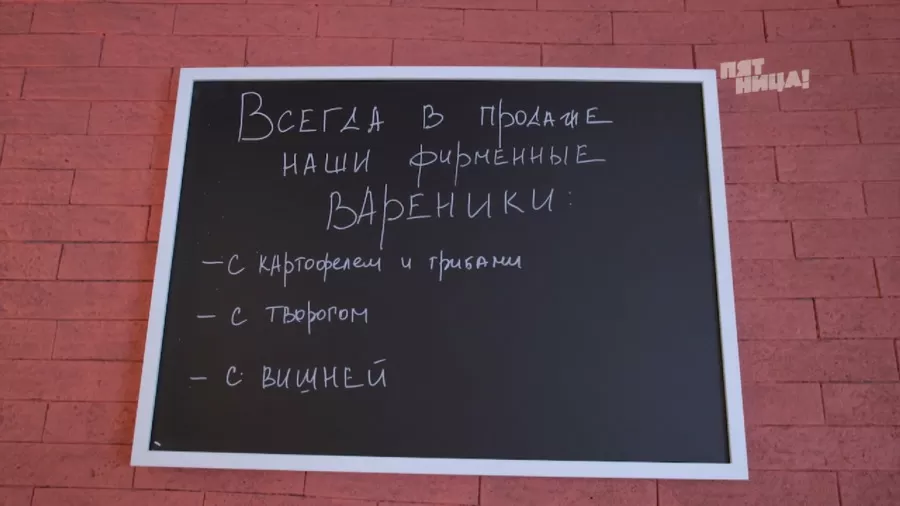 ПЯТ
НИЦА!
Всегда в продаже
наши фирменные
вареники:
– с картофелем и грибами
– с творогом
– с вишней